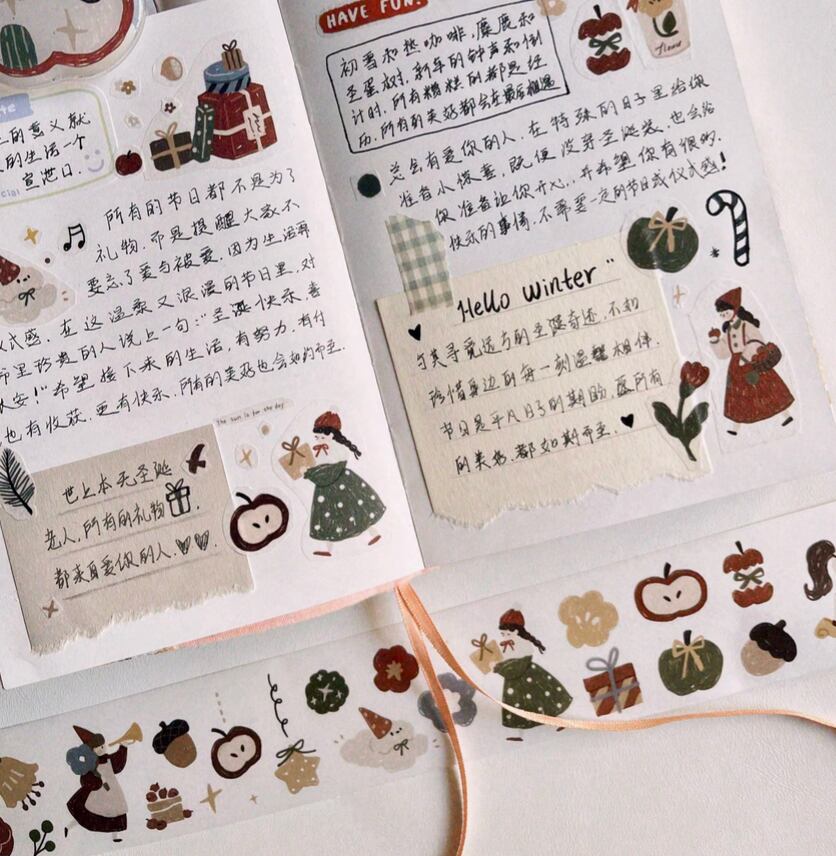 上的意义就
的生活一个
宣泄日.
cial
所有的节日都不是为了
礼物,而是提醒大家不
要忘了爱与被爱,因为生活需
仪式感.在这温柔又浪漫的节日里,对
里珍贵的人说上一句:"圣诞快乐,
安!"希望接下来的生活,有努力,有付
也有收获,更有快乐.所有的美好也会如约而至.
The sun is for the day
世上本无圣诞
老人,所有的礼物
都来自爱你的人.
HAVE FUN!
初雪和热咖啡,麋鹿和
圣诞树,新年的钟声和倒
计时,所有糟糕的都是经
历,所有的美好都会在最后相遇
总会有爱你的人,在特殊的日子里给你
准备小惊喜,既便没穿圣诞装,也会给
你准备让你开心,并希望你有很多
快乐的事情,不需要一定的节日或仪式感!
Hello winter "
与其寻觅远方的圣诞奇迹,不如
珍惜身边的每一刻温馨相伴.
节日是平凡日子的期盼 愿所有
的美好,都如期而至.
flower